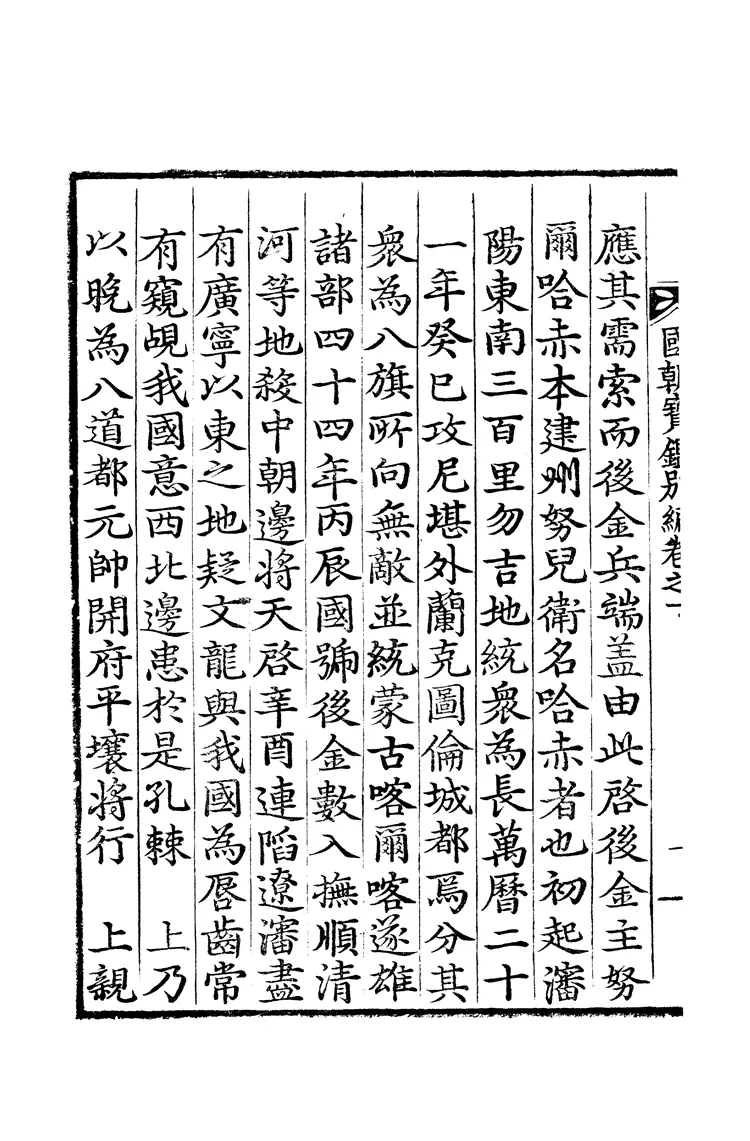 國朝寶鑑別編卷之 一
應其需索而後金兵端盖由此啓後金主努
爾哈赤本建州努兒衛名哈赤者也初起瀋
陽東南三百里勿吉地統衆為長萬曆二十
一年癸巳攻尼堪外蘭克圖倫城都焉分其
衆為八旗所向無敵並統蒙古喀爾喀遂雄
諸部四十四年丙辰國號後金數入撫順清
河等地殺中朝邊將天啓辛酉連陷遼瀋盡
有廣寧以東之地疑文龍與我國為唇齒常
有窺覘我國意西北邊患於是孔棘　上乃
以晚為八道都元帥開府平壤將行　上親